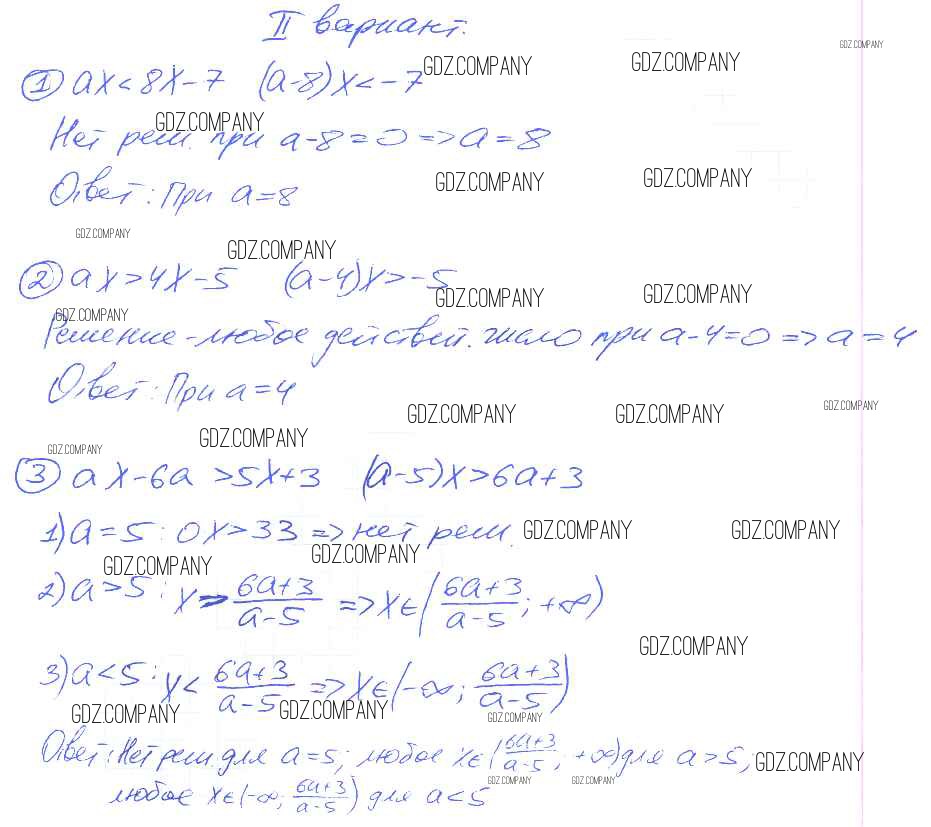 II вариант.
GDZ.COMPANY
GDZ.COMPANY GDZ.COMPANY
① ax < 8x - 7 (a-8)x < -7
GDZ.COMPANY
Нет реш. при a-8=0 => a=8
GDZ.COMPANY GDZ.COMPANY
Ответ: При a=8
GDZ.COMPANY
GDZ.COMPANY
② ax > 4x - 5 (a-4)x > -5
GDZ.COMPANY GDZ.COMPANY
GDZ.COMPANY
Решение - любое действит. число при a-4=0 => a=4
Ответ: При a=4
GDZ.COMPANY GDZ.COMPANY GDZ.COMPANY
GDZ.COMPANY GDZ.COMPANY
③ ax - 6a > 5x + 3 (a-5)x > 6a+3
1) a=5: 0x > 33 => нет реш.
GDZ.COMPANY GDZ.COMPANY
GDZ.COMPANY GDZ.COMPANY
2) a>5: x > (6a+3)/(a-5) => x∈((6a+3)/(a-5); +∞)
GDZ.COMPANY
3) a<5: x < (6a+3)/(a-5) => x∈(-∞; (6a+3)/(a-5))
GDZ.COMPANY GDZ.COMPANY GDZ.COMPANY
Ответ: Нет реш. для a=5; любое x∈((6a+3)/(a-5); +∞) для a>5;
GDZ.COMPANY
GDZ.COMPANY GDZ.COMPANY
любое x∈(-∞; (6a+3)/(a-5)) для a<5